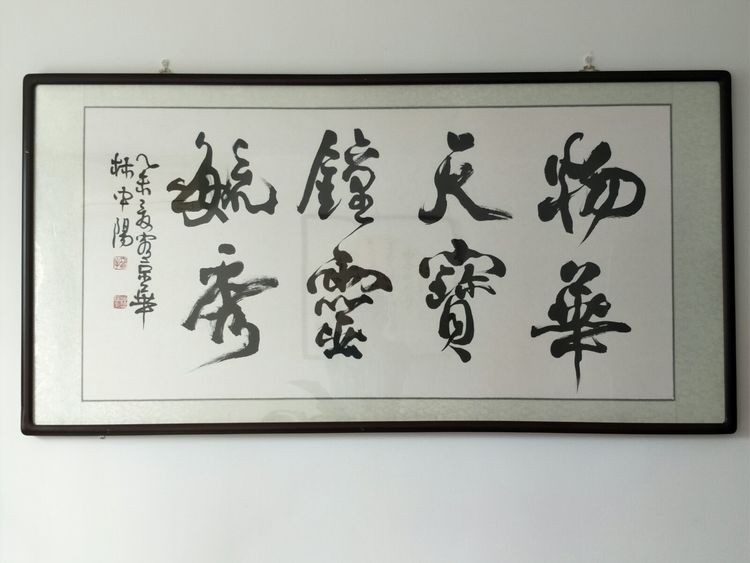 物華
天寶
鐘靈
毓秀
乙未之夏客京華
林中陽